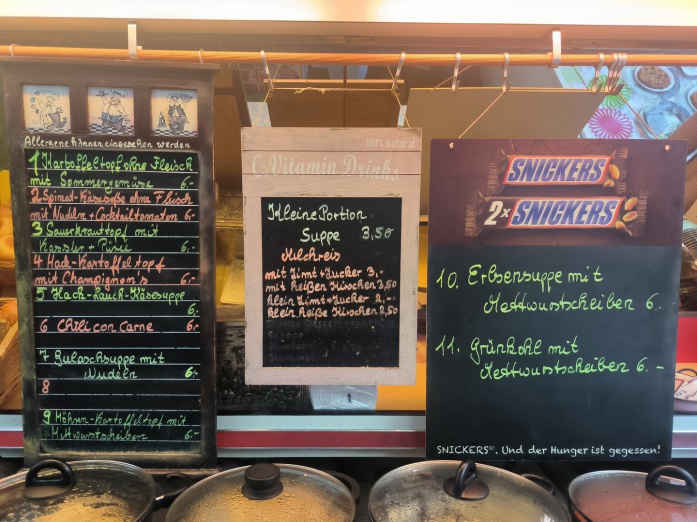 Allergene können eingesehen werden
1 Kartoffeltopf ohne Fleisch
mit Sommergemüse 6,-
2 Spinat-Käsesoße ohne Fleisch
mit Nudeln + Cocktailtomaten 6,-
3 Sauerkrauttopf mit
Kassler + Püree 6,-
4 Hack-Kartoffeltopf
mit Champignon's 6,-
5 Hack-Lauch-Käsesuppe
6,-
6 Chili con Carne 6,-
7 Gulaschsuppe mit
Nudeln 6,-
8
9 Möhren-Kartoffeltopf mit
Mettwurstscheiben 6,-
100% Natural
C Vitamin Drinks
Kleine Portion
Suppe 3,50
Milchreis
mit Zimt + Zucker 3,-
mit heißen Kirschen 3,50
klein Zimt + Zucker 2,-
klein heiße Kirschen 2,50
SNICKERS
2x SNICKERS
10. Erbsensuppe mit
Mettwurstscheiben 6.-
11. Grünkohl mit
Mettwurstscheiben 6.-
SNICKERS®. Und der Hunger ist gegessen!